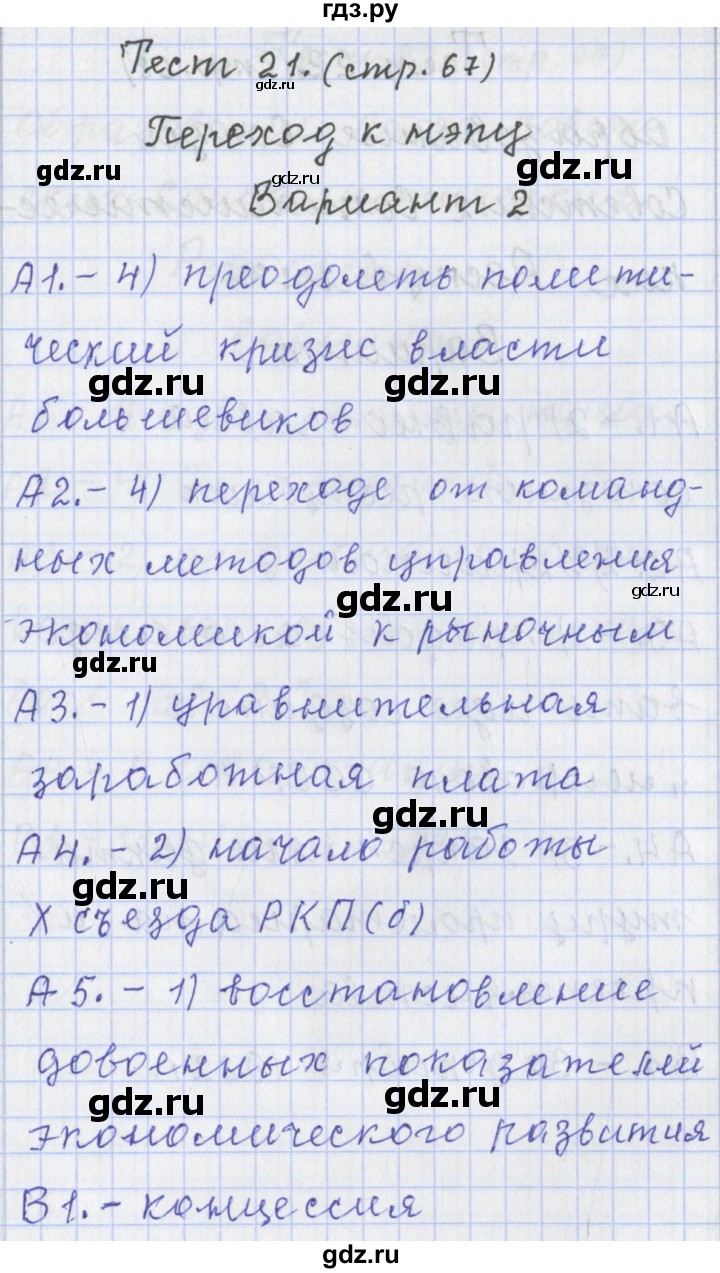 гдз.ру
Тест 21. (стр. 67)
gdz.ru
Переход к нэпу
gdz.ru
gdz.ru
gdz.ru
Вариант 2
А1. - 4) преодолеть полити-
ческий кризис власти
gdz.ru
gdz.ru
большевиков
А2. - 4) переходе от команд-
ных методов управления
gdz.ru
gdz.ru
экономикой к рыночным
gdz.ru
А3. - 1) уравнительная
заработная плата
gdz.ru
А4. - 2) начало работы
gdz.ru
X съезда РКП(б)
А5. - 1) восстановление
довоенных показателей
gdz.ru
gdz.ru
экономического развития
В1. - концессия
gdz.ru